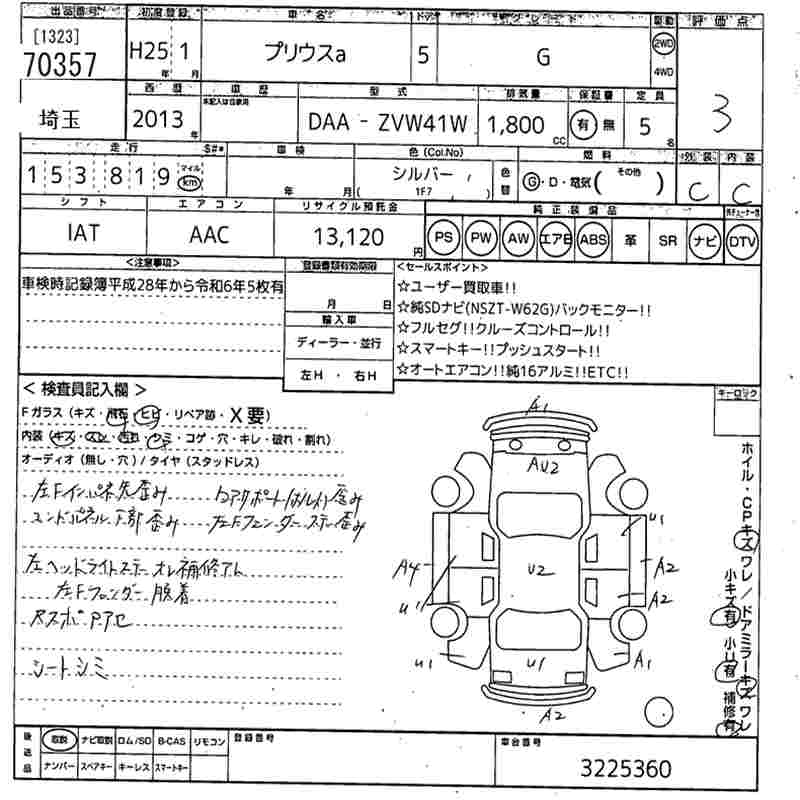 出品番号 初度登録 車名 ドア グレード 駆動 評価点
[1323]
70357 H25 1 プリウスa 5 G 2WD 3
年 月 4WD
西暦 車歴 型式 排気量 保証書 定員
埼玉 2013 年 DAA - ZVW41W 1,800 cc 有 無 5 名
走行 S#* 車検 色(Col.No) 燃料 外装 内装
153819 マイル km 年 月 シルバー ( 1F7 ) 色替 G・D・電気( その他 ) C C
シフト エアコン リサイクル預託金 純正装備品
IAT AAC 13,120 円 PS PW AW エアB ABS 革 SR ナビ DTV
<注意事項> 登録書類有効期限 <セールスポイント>
車検時記録簿平成28年から令和6年5枚有 ☆ユーザー買取車!!
月 日 ☆純SDナビ(NSZT-W62G)バックモニター!!
輸入車 ☆フルセグ!!クルーズコントロール!!
ディーラー・並行 ☆スマートキー!!プッシュスタート!!
左H ・ 右H ☆オートエアコン!!純16アルミ!!ETC!!
<検査員記入欄> キーロック
Fガラス (キズ・飛石・ヒビ・リペア跡・X要)
内装 (キズ・スレ・汚れ・シミ・コゲ・穴・キレ・破れ・割れ)
オーディオ (無し・穴) / タイヤ (スタッドレス)
左Fインパネ先歪み
エンドパネル下部歪み 左Fフェンダーステー歪み
左ヘッドライトステーオレ補修アト
左Fフェンダー脱着
シートシミ
A1
AU2
U1
A4 U2 A2
U1 A2
U1 U1 A1
A2
ホイル・CPキズワレ / ドアミラーキズワレ
小キズ有 小U有 補修有
後送品 取説 ナビ取説 ロム/SD B-CAS リモコン 登録番号 車台番号
ナンバー スペアキー キーレス スマートキー 3225360